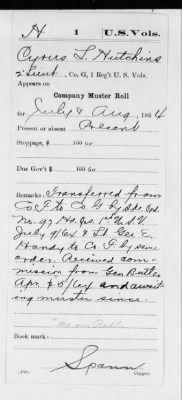 H 1 U.S. Vols.
Cyrus L Hutchins
2' Lieut, Co. G, 1 Reg't U. S. Vols.
Appears on
Company Muster Roll
for July & Aug, 1864
Present or absent Present
Stoppage, $ 100 for
Due Gov't $ 100 for
Remarks: Transferred from
Co. F. to Co. G by Spe. Ord.
No. 27 Hd. Qrs. 1st U.S.V
July 9/64 & Lt Geo E.
Handy to Co F. by same
order. Received com-
mission from Gen Butler
Apr. & 5/64 and await
ing muster since.
Book mark:
Spann
Copyist.